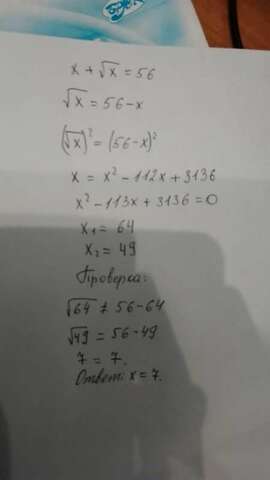 x + √x = 56
√x = 56 - x
(√x)² = (56 - x)²
x = x² - 112x + 3136
x² - 113x + 3136 = 0
x₁ = 64
x₂ = 49
Проверка:
√64 ≠ 56 - 64
√49 = 56 - 49
7 = 7.
Ответ: x = 7.